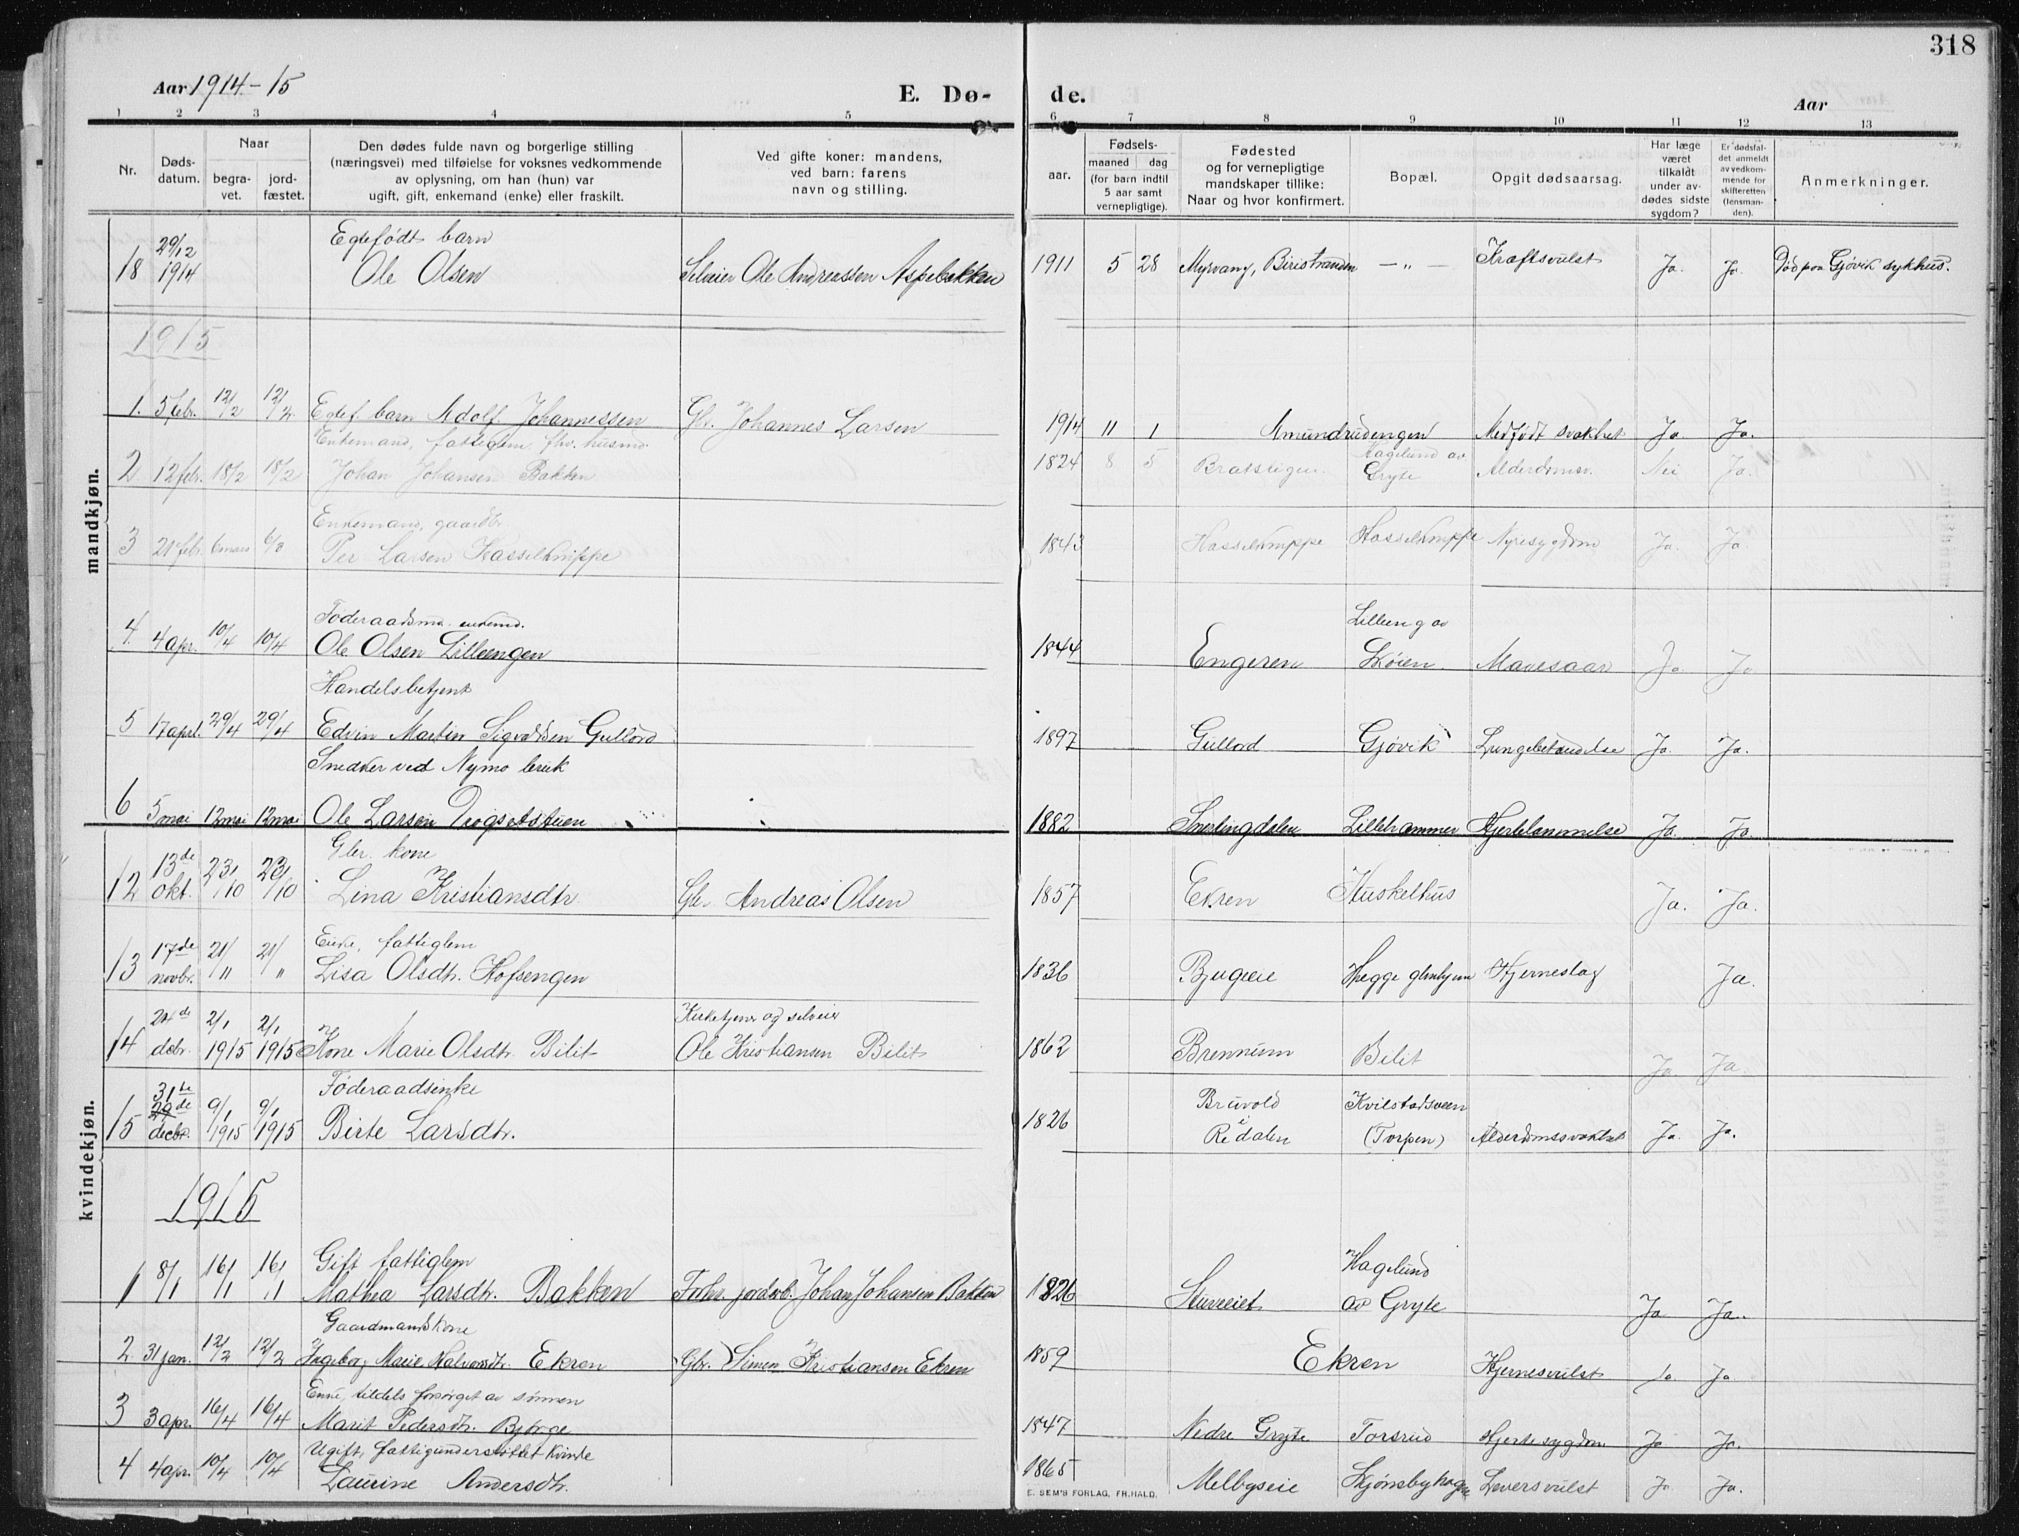 318
Aar 1914-15
E. Dø- de.
Aar
1 2 3 4 5 6 7 8 9 10 11 12 13
Nr.
Døds-
datum.
Naar
begra-
vet.
jord-
fæstet.
Den dødes fulde navn og borgerlige stilling
(næringsvei) med tilføielse for voksnes vedkommende
av oplysning, om han (hun) var
ugift, gift, enkemand (enke) eller fraskilt.
Ved gifte koner: mandens,
ved barn: farens
navn og stilling.
aar.
Fødsels-
maaned dag
(for barn indtil
5 aar samt
vernepligtige).
Fødested
og for vernepligtige
mandskaper tillike:
Naar og hvor konfirmert.
Bopæl.
Opgit dødsaarsag.
Har læge
været
tilkaldt
under av-
dødes sidste
sygdom?
Er dødsfal-
det anmeldt
av vedkom-
mende for
skifteretten
(lensman-
den).
Anmerkninger.
mandkjøn.
Egtefødt barn
18 29/12 1914 Ole Olsen Selveier Ole Andreassen Aspebakken 1911 5 28 Myrvang, Biristranden -„- Kraftsvulst Ja. Ja. Død paa Gjøvik sykhus.
1915
1. 5 febr. 12/2 12/2 Egtef. barn Adolf Johannessen Gbr. Johannes Larsen 1914 11 1 Amundrudengen Medfødt svakhet Ja. Ja.
Enkemand, fattiglem fhv. husmd.
2 12 febr. 18/2 18/2 Johan Johansen Bakken 1824 8 5 Bratstigen Hagelund av Gryte Alderdomsv. Nei Ja.
Enkemand, gaardbr.
3 21 febr. 6 mars 6/3 Per Larsen Hasselknippe 1843 Hasselknippe Hasselknippe Nyresygdom Ja. Ja.
Føderaadsma. enkemd.
4. 4 apr. 10/4 10/4 Ole Olsen Lilleengen 1844 Engeren Lilleeng av Skøien Mavesaar Ja Ja
Handelsbetjent
5 17 aprl. 29/4 29/4 Edvin Martin Sigvaldsen Gullord 1897 Gullord Gjøvik Lungebetændelse Ja. Ja.
Snedker ved Nymo bruk
6 5 mai 12 mai 12 mai Ole Larsen Trogsetstuen 1882 Smerlingdalen Lillehammer Hjertelammelse Ja. Ja.
kvindekjøn.
Gbr. kone
12 13de okt. 23/10 23/10 Lina Kristiansdtr. Gbr. Andreas Olsen 1857 Ekren Huskelhus Ja. Ja.
Enke, fattiglem
13 17de novbr. 21/11 21/„ Lisa Olsdtr. Hofsengen 1836 Bjugeie Hegge Hjerneslag Ja.
Kirketjener og selveier
14 24de decbr. 2/1 1915 2/1 1915 Kone Marie Olsdtr. Bilit Ole Kristiansen Bilit 1862 Brennum Bilit Ja. Ja.
Føderaadsenke
15 31te 29de decbr. 9/1 1915 9/1 1915 Birte Larsdtr. 1826 Bruvold i Redalen Kvilstadsveen (Torpen) Alderdomssvakhet Ja. Ja.
1915
Gift fattiglem
1 8/1 16/1 16/1 Mathea Larsdtr. Bakken Fhv. jordbr. Johan Johansen Bakken 1826 Stuveeiet Hagelund av Gryte Ja Ja.
Gaardmandskone
2 31 jan. 12/2 12/2 Ingeborg Marie Halvorsdtr. Ekren Gbr. Simen Kristiansen Ekren 1859 Ekren Hjernesvulst Ja Ja.
Enke, tildels forsørget av sønnen
3 3 apr. 16/4 16/4 Marit Pedersdtr. Bjørge 1847 Nedre Gryte Torsrud Hjertesygdom Ja Ja.
Ugift, fattigunderstøttet kvinde
4 4 apr. 10/4 10/4 Laurine Andersdtr. 1865 Melbyseie Skjønsbyhagen Leversvulst Ja Ja.
E. SEM'S FORLAG, FR.HALD.